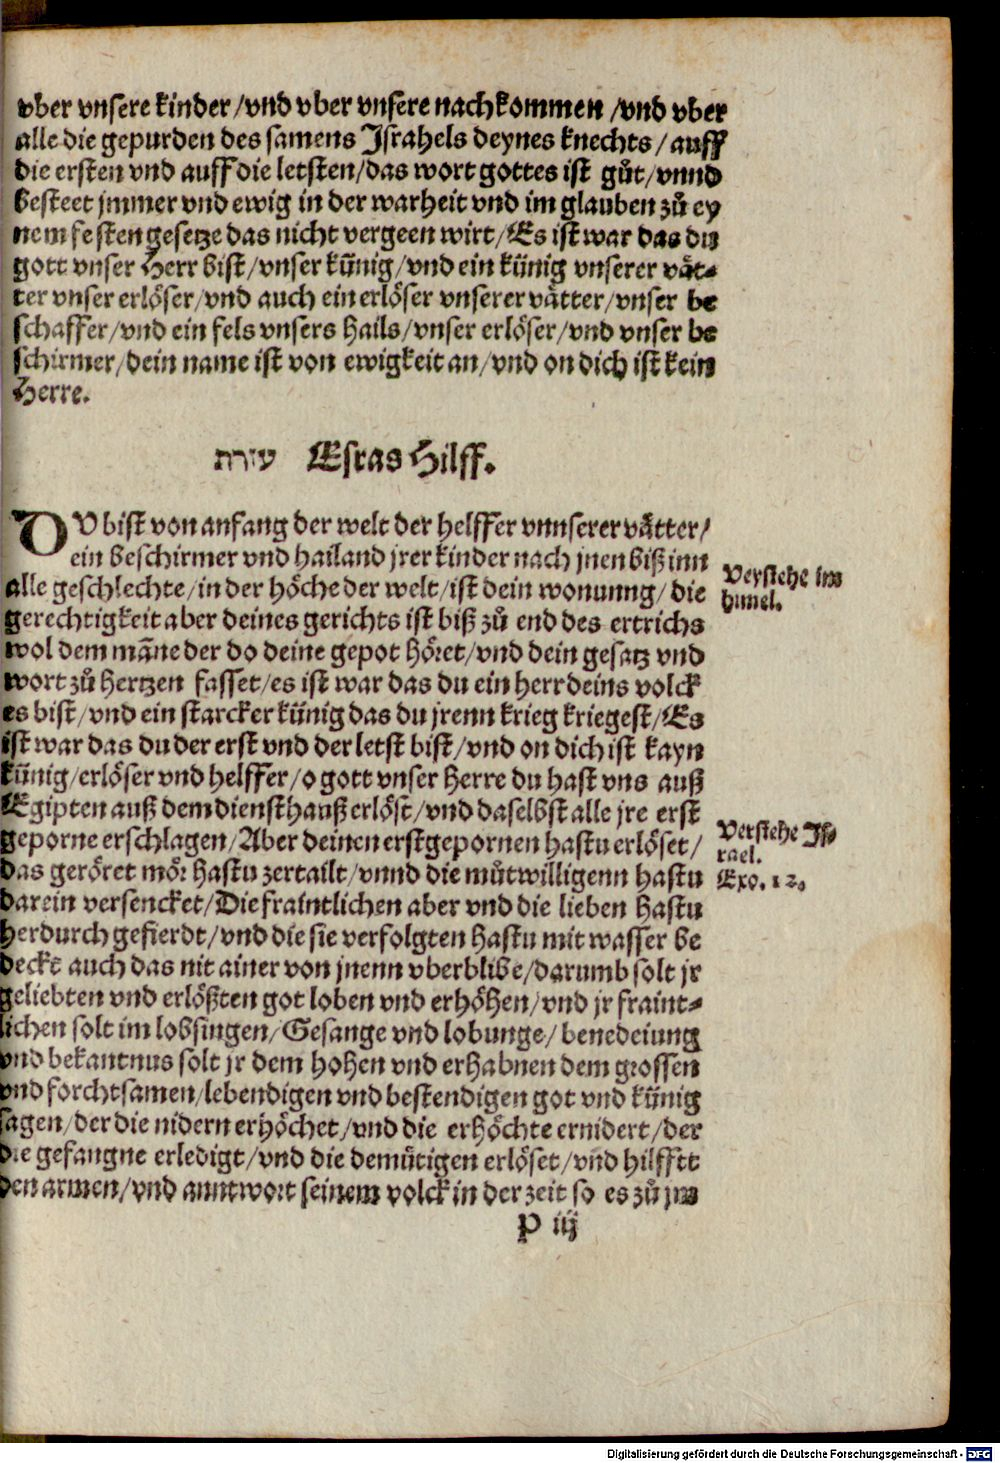 vber vnsere kinder/vnd vber vnsere nachkommen/vnd vber
alle die gepurden des samens Israhels deynes knechts/auff
die ersten vnd auff die letsten/das wort gottes ist gůt/vnnd
besteet jmmer vnd ewig in der warheit vnd im glauben zů ey
nem festen gesetze das nicht vergeen wirt/Es ist war das du
gott vnser Herr bist/vnser künig/vnd ein künig vnserer vät-
ter vnser erlöser/vnd auch ein erlöser vnserer vätter/vnser be
schaffer/vnd ein fels vnsers hails/vnser erlöser/vnd vnser be
schirmer/dein name ist von ewigkeit an/vnd on dich ist kein
Herre.
עזרת Esras Hilff.
DV bist von anfang der welt der helffer vnnserer vätter/
ein beschirmer vnd hailand jrer kinder nach jnen biß inn
alle geschlechte/in der höche der welt/ist dein wonunng/die
gerechtigkeit aber deines gerichts ist biß zů end des ertrichs
wol dem mãne der do deine gepot höret/vnd dein gesatz vnd
wort zů hertzen fasset/es ist war das du ein herr deins volck
es bist/vnd ein starcker künig das du jrenn krieg kriegest/Es
ist war das du der erst vnd der letst bist/vnd on dich ist kayn
künig/erlöser vnd helffer/o gott vnser Herre du hast vns auß
Egipten auß dem diensthauß erlöst/vnd daselbst alle jre erst
geporne erschlagen/Aber deinen erstgepornen hastu erlöset/
das geröret mör hastu zertailt/vnnd die můtwilligenn hastu
darein versencket/Die fraintlichen aber vnd die lieben hastu
herdurch gefierdt/vnd die sie verfolgten hastu mit wasser be
deckt auch das nit ainer von jnenn vberblibe/darumb solt jr
geliebten vnd erlößten got loben vnd erhöhen/vnd jr fraint-
lichen solt im lobsingen/Gesange vnd lobunge/benedeiung
vnd bekantnus solt jr dem hohen vnd erhabnen dem grossen
vnd forchtsamen/lebendigen vnd bestendigen got vnd künig
sagen/der die nidern erhöchet/vnd die erhöchte ernidert/der
die gefangne erledigt/vnd die demütigen erlöset/vñd hilfftt
den armen/vnd anntwort seinem volck in der zeit so es zů jm
P iij
Verstehe im
himel.
Verstehe Js-
rael.
Exo. 12.
Digitalisierung gefördert durch die Deutsche Forschungsgemeinschaft - DFG